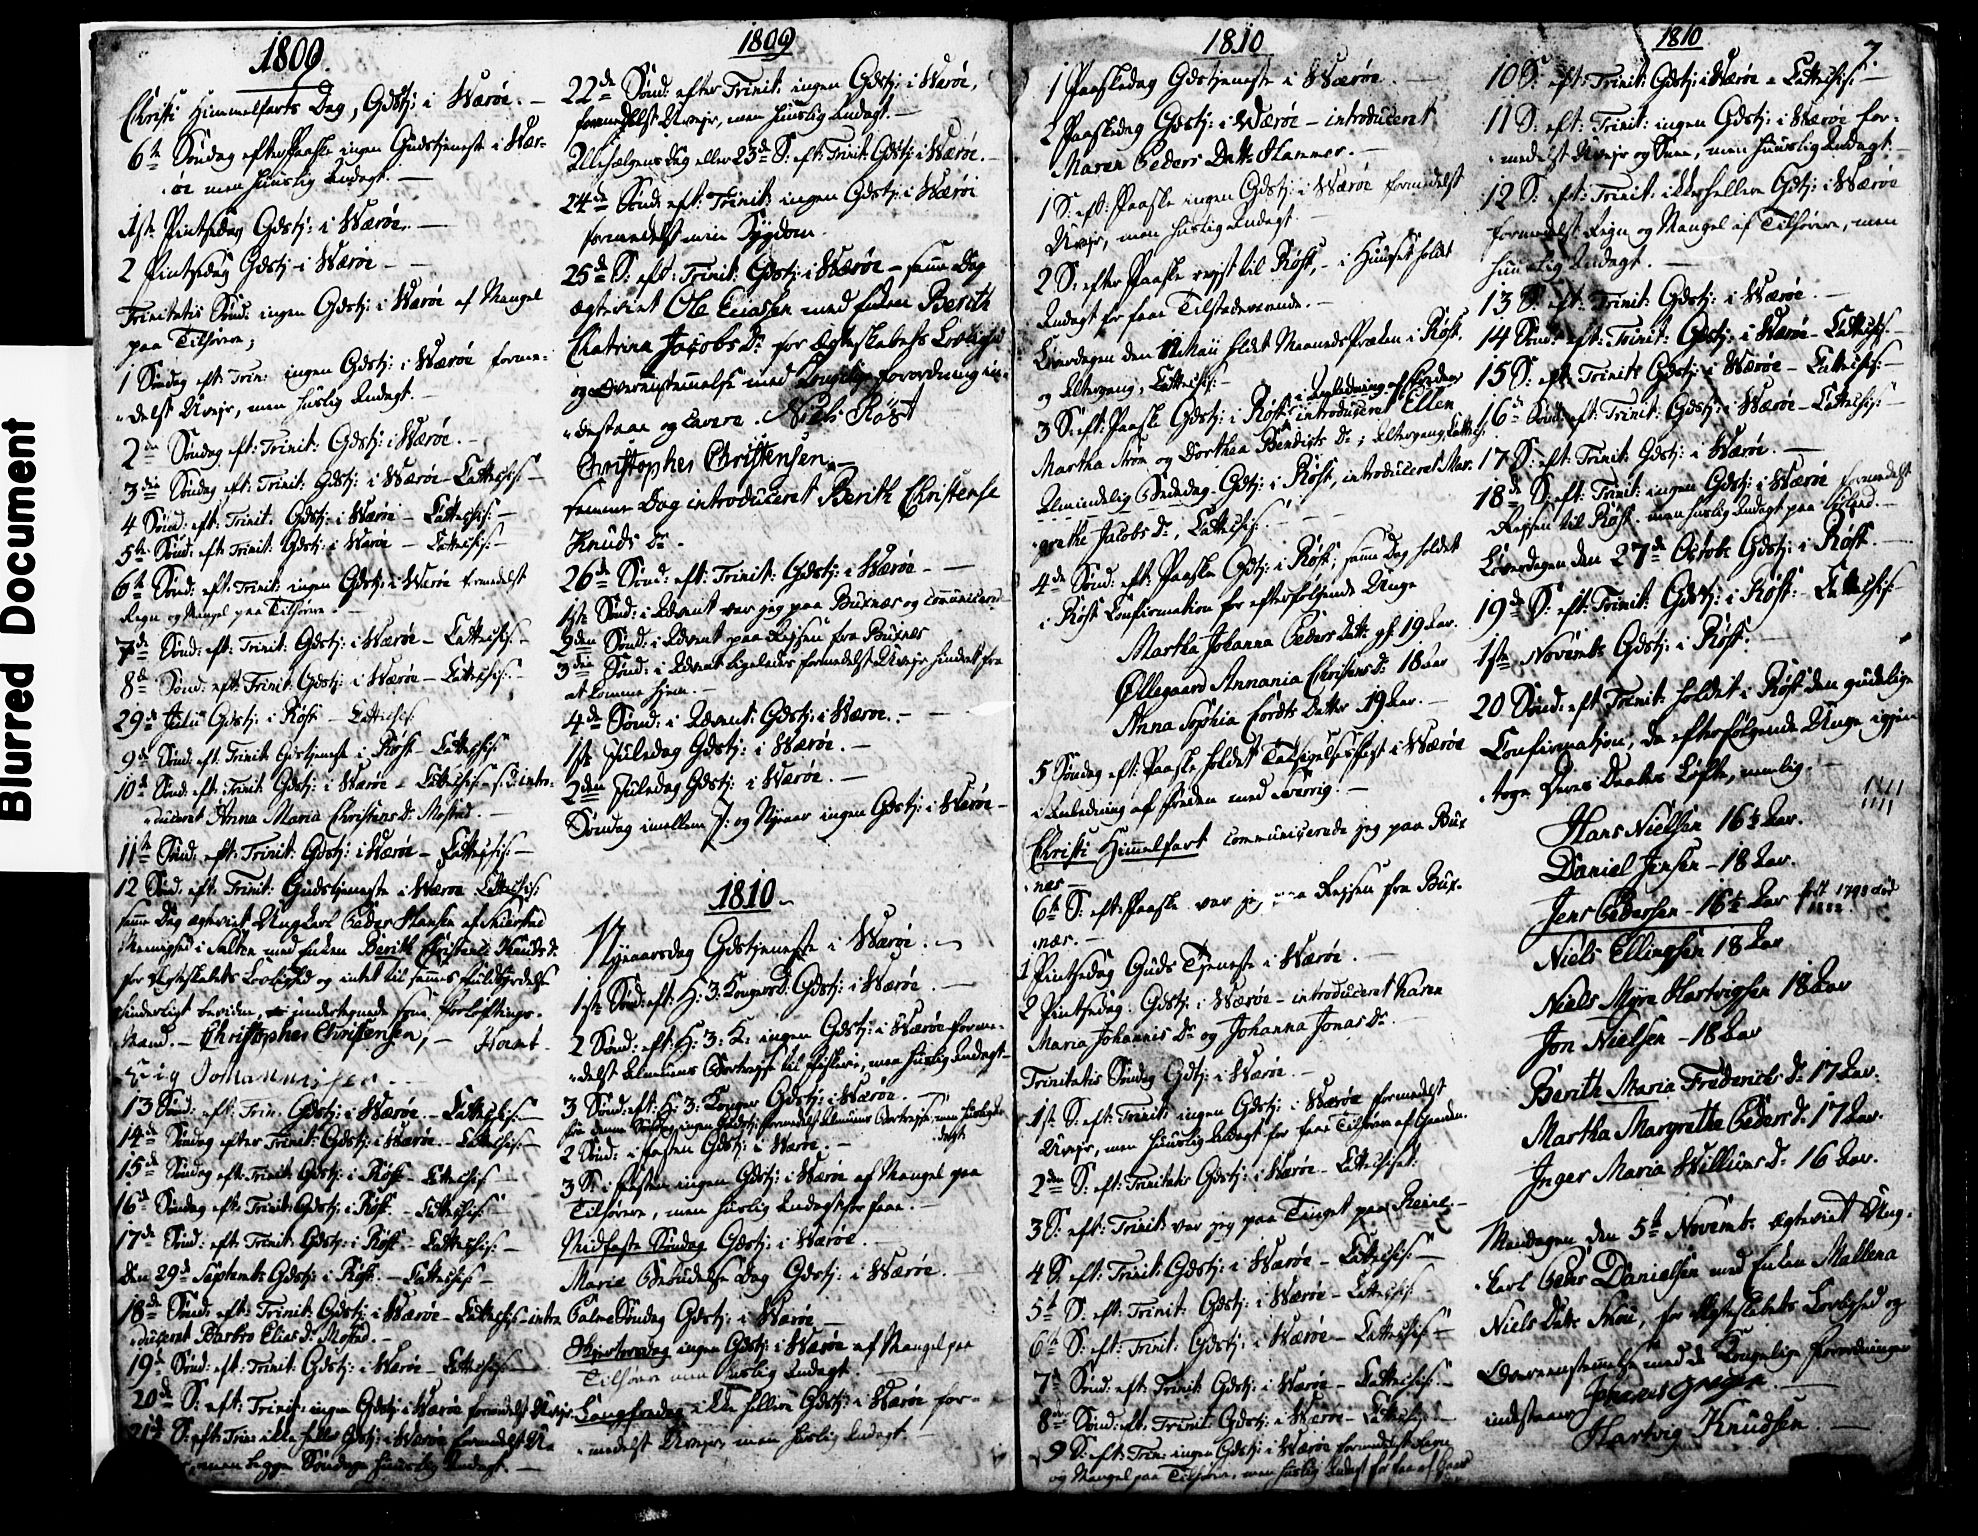 Blurred Document
1809
Christi Himmelfarts Dag, Gdstj: i Værøe. –
6te Søndag efter Paaske ingen Gudstjeneste i Vær-
øe men huuslig Andagt. –
1ste Pintsedag Gdstj: i Værøe. –
2 Pintsedag Gdstj: i Værøe –
Trinitatis Sønd: ingen Gdstj: i Værøe af Mangel
paa Tilhørere;
1 Søndag eft: Trin: ingen Gdstj: i Værøe forme-
delst Uvejr, men huslig Andagt. –
2den Søndag eft: Trinit: Gdstj: i Værøe. –
3die Søndag eft: Trinit: Gdstj: i Værøe – Cattechis: –
4 Sønd: eft: Trinit: Gdstj: i Værøe – Cattechis: –
5te Sønd: eft: Trinit: Gdstj: i Værøe – Cattechis: –
6te Sønd: eft: Trinit: ingen Gdstj: i Værøe formedelst
Regn og Mangel paa Tilhørere. –
7de Sønd: eft: Trinit: Gdstj: i Værøe – Cattechis: –
8de Sønd: eft: Trinit: Gdstj: i Værøe – Cattechis: –
29de Julii Gdstj: i Røst – Cattechis:
9de Sønd: eft: Trinit: Gudstjeneste i Røst – Cattechis:
10de Sønd: eft: Trinit: Gdstj: i Værøe – Cattechis: – s: D: intro-
duceret Anna Maria Christens D: Mostad. –
11te Sønd: eft: Trinit: Gdstj: i Værøe – Cattechis: –
12 Sønd: eft: Trinit: Gudstjeneste i Værøe Cattechis:
samme Dag ægteviet Ungkarl Peder Hansen af
Menighed i Salten med Enken Berith Christense Knuds D:
for Ægteskabets Lovlighed og intet til
hinderligt undertegnede som Forlovnings-
Mænd. – Christopher Christensen, –
Johannissen
13 Sønd: eft: Trin: Gdstj: i Værøe – Cattechis: –
14de Søndag efter Trinit: Gdstj: i Værøe – Cattechis: –
15de Søndag eft: Trinit: Gdstj: i Røst – Cattechis: –
16de Søndag eft: Trinit: Gdstj: i Røst – Cattechis: –
17de Sønd: eft: Trinit: Gdstj: i Røst – Cattechis: –
Den 29de Septembr Gdstj: i Røst. – Cattechis: –
18de Sønd: eft: Trinit: Gdstj: i Værøe – Cattechis – intro
duceret Barbro Elias D: Mostad. –
19de Sønd: eft: Trinit: Gdstj: i Værøe – Cattechis: –
20de S: eft: Trinit: ingen Gdstj: i Værøe formedelst Uvejr
21de S: eft: Trin: ikke heller Gdstj: i Værøe formedelst Uve
men begge Søndage huuslig Andagt. –
1809
22de Sønd: efter Trinit: ingen Gdstj: i Værøe,
formedelst Uvejr, men huuslig Andagt. –
Allehelgens Dag eller 23de S: eft: Trinit: Gdstj: i Værøe. –
24de Sønd: eft: Trinit: ingen Gdstj: i Værøe
formedelst min Sygdom.
25de S: eft: Trinit: Gdstj: i Værøe – samme Dag
ægteviet Ole Eliassen med Enken Berith
Chatrina Jacobs D: for Ægteskabets Lovlighed
og Overensstemmelse med Kongelige Forordning in-
destaae og cavere. Niels Røst
Christopher Christensen. –
samme Dag introduceret Berith Christense
Knuds D: –
26de Sønd: eft: Trinit: Gdstj: i Værøe. – –
1ste Sønd: i Advent var jeg paa Buxnæs og communicere
2den Sønd: i Advent paa Rejsen fra Buxnæs
3die Sønd: i Advent ligeledes formedelst Uvejr hindret fra
at komme hjem. –
4de Sønd: i Advent: Gdstj: i Værøe. – –
1ste Juledag Gdstj: i Værøe. –
2den Juledag Gdstj: i Værøe. –
Søndag imellem J: og Nyeaar ingen Gdstj: i Værøe –
1810
Nyeaarsdag Gdstjeneste i Værøe. –
1ste Sønd: eft: H: 3: Kongersd: Gdstj: i Værøe. –
2 Sønd: eft: H: 3: K: ingen Gdstj: i Værøe forme-
delst Almuens Bortrejse til Fiskerie, men huslig Andagt –
3 Sønd: eft: H: 3: Konger Gdstj: i Værøe. –
ingen Gudstj: formedelst Almuens Bortrejse, men
2 Sønd: i Fasten Gdstj: i Værøe. –
3 S: i Fasten ingen Gdstj: i Værøe af Mangel paa
Tilhørere, men huslig Andagt for faae. –
Midfaste Søndag Gdstj: i Værøe. –
Mariæ Bebudelses Dag Gdstj: i Værøe.
Palme Søndag Gdstj: i Værøe –
Skjertorsdag ingen Gdstj: i Værøe af Mangel paa
Tilhørere men huslig Andagt.
Langfredag ikke hellere Gdstj: i Værøe for-
medelst Uvejr, men huslig Andagt. –
1810
1 Paaskedag Gdstjeneste i Værøe. –
2 Paaskedag Gdstj: i Værøe – introduceret
Maren Peders Datt: Hammer. –
1 S: eft: Paaske ingen Gdstj: i Værøe formedelst
Uvejr, men huslig Andagt –
2 S: efter Paaske rejst til Røst, – i Huuset holdt
Andagt for faae Tilstædeværende. –
Løverdagen den 12 Maii holdt Maaneds Præken i Røst.
og Altergang, Cattechis: –
i Anledning af Freden
3 S: eft: Paaske Gdstj: i Røst introduceret Ellen
Martha Strøm og Dorthea Bendigts D: ; Altergang Cattech:
Almindelig Bededag Gdtj: i Røst, introduceret Mar-
grethe Jacobs D:, Cattechis: –
4de Sønd: eft: Paaske Gdstj: i Røst, samme Dag holdet
i Røst Confirmation for efterfølgende Unge
Martha Johanna Peders Datt: gl: 19 Aar.
Øllegaard Annania Christens D: 18 Aar
Anna Sophia Cordts Datter 19 Aar. –
5 Søndag eft: Paaske holdet Taksigelsesfest i Værøe
i Anledning af Freden med Sverrig. –
Christi Himmelfart communicerede jeg paa Bux
næs –
6te S: eft: Paaske var jeg paa Rejsen fra Bux-
næs. –
1 Pintsedag Guds Tjeneste i Værøe. –
2 Pintsedag Gdstj: i Værøe – introduceret Karen
Maria Johannis D: og Johanna Jonas D: –
Trinitatis Søndag Gdtj: i Værøe. –
1ste S: eft: Trinit: ingen Gdstj: i Værøe formedelst
Uvejr, men huuslig Andagt for faae Tilhørere af Gaarden.
2den S: eft: Trinitatis Gdstj: i Værøe – Cattechiset:
3 S: eft: Trinit: var jeg paa Tinget paa Reine –
4 S: eft: Trinit: Gdstj: i Værøe – Cattechis: –
5te S: eft: Trinit: Gdstj: i Værøe – Cattechis: –
6te S: eft: Trinit: Gdstj: i Værøe – Cattechis: –
7de Sønd: eft: Trinit: Gdstj: i Værøe – Cattechis: –
8de Sønd: eft: Trinit: Gdstj: i Værøe – Cattechis: –
9 S: eft: Trin: ingen Gdstj: i Værøe formedelst Regn
og Mangel paa Tilhørere, men huslig Andagt for faae af Gaar
1810
7.
10 S: eft: Trinit: Gdstj: i Værøe – Cattechis: –
11 S: eft: Trinit: ingen Gdstj: i Værøe for-
medelst Uvejr og Snee, men huuslig Andagt. –
12 S: eft: Trinit: ikke hellere Gdstj: i Værøe
formedelst Regn og Mangel af Tilhørere, men
huuslig Andagt. –
13 S: eft: Trinit: Gdstj: i Værøe. –
14 Sønd: eft: Trinit: Gdstj: i Værøe – Cattechis: –
15 S: eft: Trinit: Gdstj: i Værøe – Cattechis: –
16de Sønd: eft: Trinit: Gdstj: i Værøe – Cattechis: –
17 S: eft: Trinit: Gdstj: i Værøe. –
18de S: eft: Trinit: ingen Gdstj: i Værøe formedelst
Rejsen til Røst men huslig Andagt paa –
Løverdagen den 27de Octobr Gdstj: i Røst. –
19de S: eft: Trinit: Gdstj: i Røst – Cattechis:
1ste Novembr Gdstj: i Røst. –
20 Sønd: eft Trinit: holdet i Røst den gudelige
Confirmation, da efterfølgende Unge igjen
toge Deres Daabes Løfte, nemlig. –
Hans Nielsen 16½ Aar.
Daniel Jensen – 18 Aar.
Jens Pedersen – 16½ Aar
Niels Ellingsen 18 Aar
Niels Myre Hartvigsen 18 Aar
Jon Nielsen – 18 Aar
Berith Maria Friderichs D: 17 Aar.
Martha Margrethe Peders D: 17 Aar.
Inger Maria Willums D: 16 Aar.
Mandagen den 5te Novembr ægteviet Ung-
karl Peder Danielsen med Enken Mallena
Niels Datt: for Ægteskabets Lovlighed og
Overeenstemmelse med de Kongelige Forordninger
indestaaer Johanes
Hartvig Knudsen –